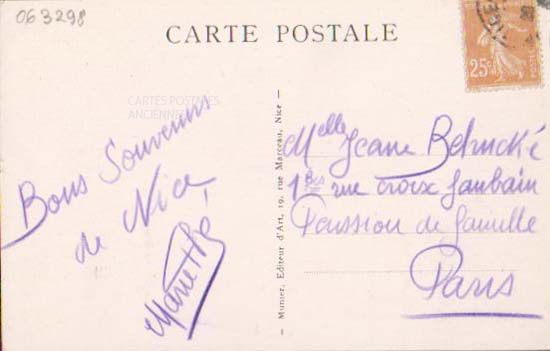 063298
CARTE POSTALE
25c
CARTES POSTALES
ANCIENNES
Bons Souvenirs
de Nice
— Munier, Editeur d'Art, 19, rue Marceau, Nice —
Melle Jeane
1 Bis rue Croix Jaubain
Penssion de Famille
Paris